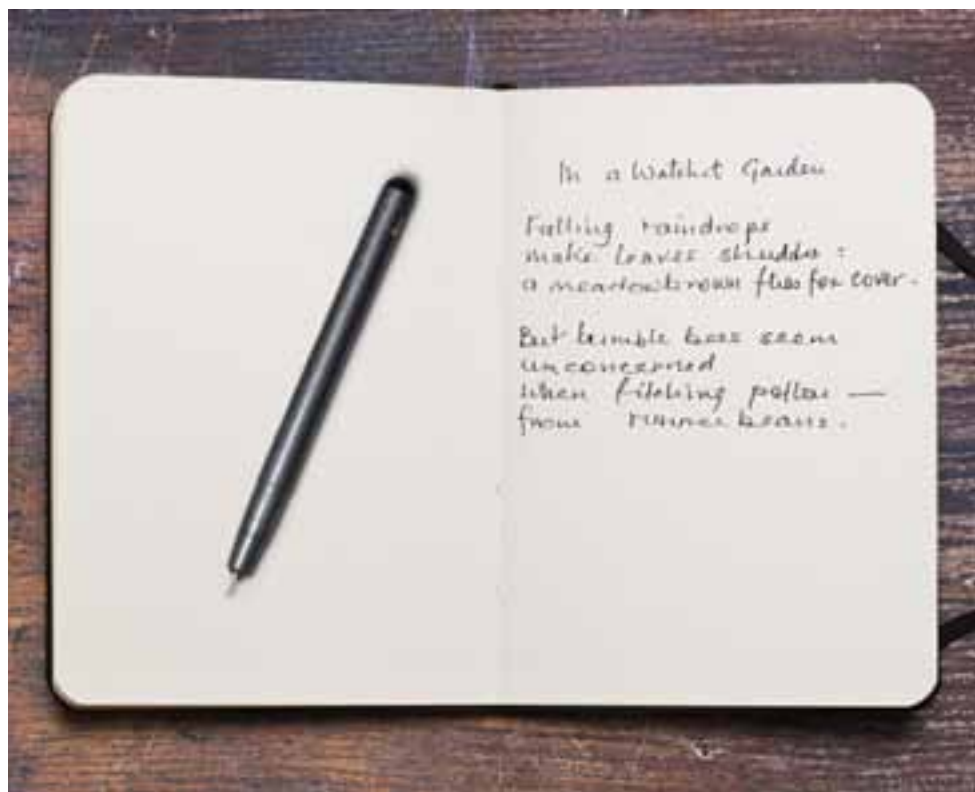 In a Watchet Garden
Falling raindrops
make leaves shudder :
a meadowbrown flies for cover.
But bumble bees seem
unconcerned
when filching pollen —
from runner beans.